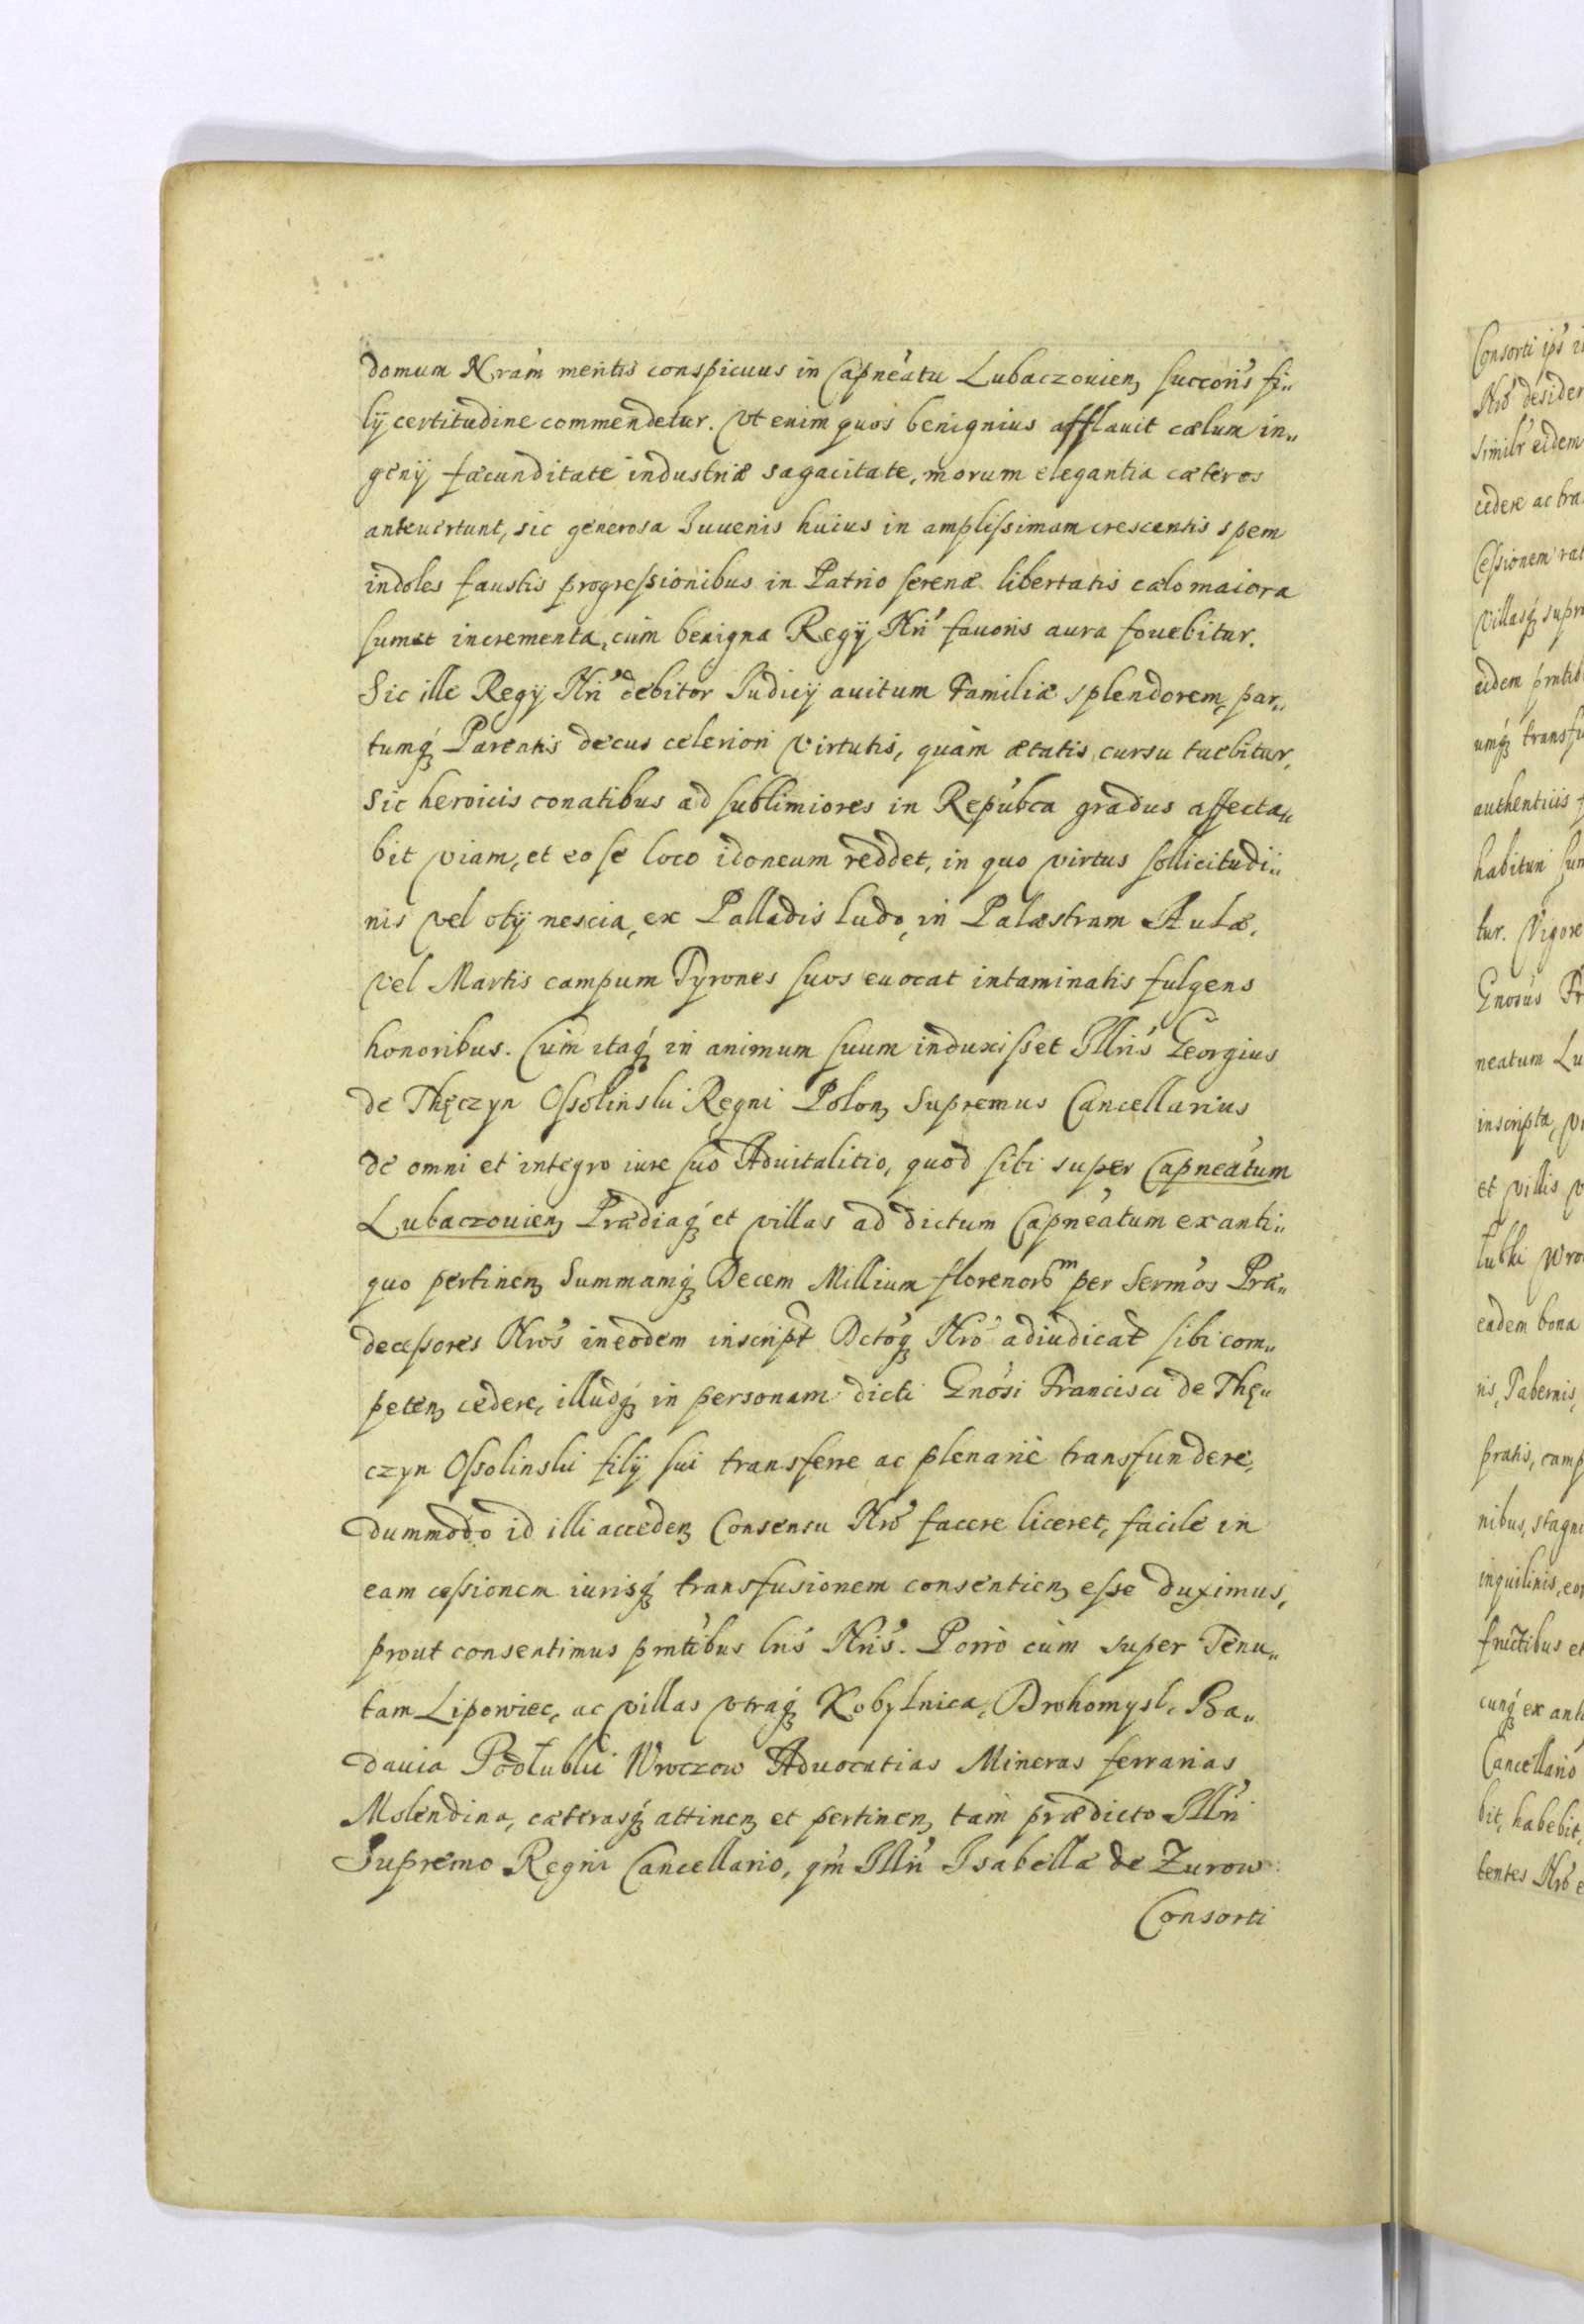 domum Nram meritis conspicuus in Capneatu Lubaczouien, succoris fi„
lÿ certitudine commendetur. Vt enim quos benignius afflauit cælum in„
genÿ fæcunditate industriæ sagacitate, morum elegantia cæteros
anteuertunt, sic generosa Juuenis huius in amplissimam crescentis spem
indoles faustis progressionibus in Patrio serenæ libertatis cælo maiora
sumet incrementa, cùm benigna Regÿ Nri fauoris aura fouebitur.
Sic ille Regÿ Nri debitor Judicÿ auitum Familiæ splendorem, par„
tumq́ Parentis decus celeriori virtutis, quàm ætatis cursu tuebitur,
Sic heroicis conatibus ad sublimiores in Repúbca gradus affecta„
bit viam, et eo se loco idoneum reddet, in quo virtus sollicitudi„
nis vel otÿ nescia, ex Palladis ludo, in Palæstram Aulæ,
vel Martis campum Tyrones suos euocat intaminatis fulgens
honoribus. Cùm itaq́ in animum suum induxisset Illris Georgius
de Thęczyn Ossolinski Regni Polon, Supremus Cancellarius
de omni et integro iure suo Aduitalitio, quod sibi super Capneatum
Lubaczouien, Prædiaq́ et villas ad dictum Capneatum ex anti„
quo pertinen, Summamq́ Decem Millium florenorum per Sermos Præ„
decessores Nros in eodem inscript Dctoq́ Nro adiudicat sibi com„
peten, cedere, illudq́ in personam dicti Gnosi Francisci de Thę„
czyn Ossolinski filÿ sui transferre ac plenariè transfundere,
dummodo id illi acceden, Consensu Nro facere liceret, facile in
eam cessionem iurisq́ transfusionem consentien, esse duximus,
prout consentimus pntibus lris Nris. Porrò cùm super Tenu„
tam Lipowiec, ac villas vtraq́ Kobylnica, Drohomysl, Ba„
dauia Podłubki Wroczow Aduocatias Mineras ferrarias
Molendina, cæterasq́ attinen, et pertinen, tàm prædicto Illri
Supremo Regni Cancellario, qm Illri Isabellæ de Zurow
Consorti